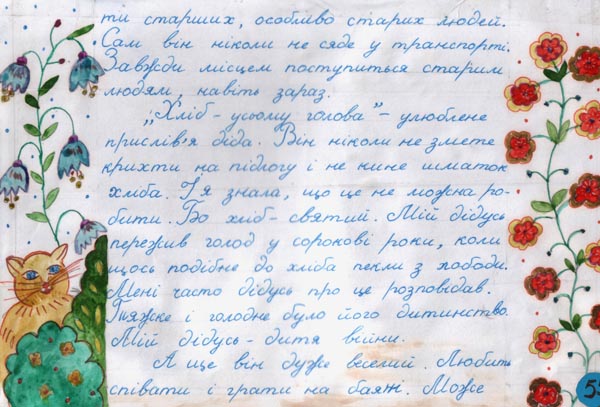 ти старших, особливо старих людей.
Сам він ніколи не сяде у транспорті.
Завжди місцем поступиться старим
людям, навіть зараз.
„Хліб - усьому голова" - улюблене
прислів'я діда. Він ніколи не змете
крихти на підлогу і не кине шматок
хліба. І я знала, що це не можна ро-
бити. Бо хліб - святий. Мій дідусь
пережив голод у сорокові роки, коли
щось подібне до хліба пекли з лободи.
Мені часто дідусь про це розповідав.
Тяжке і голодне було його дитинство.
Мій дідусь - дитя війни.
А ще він дуже веселий. Любить
співати і грати на баяні. Може